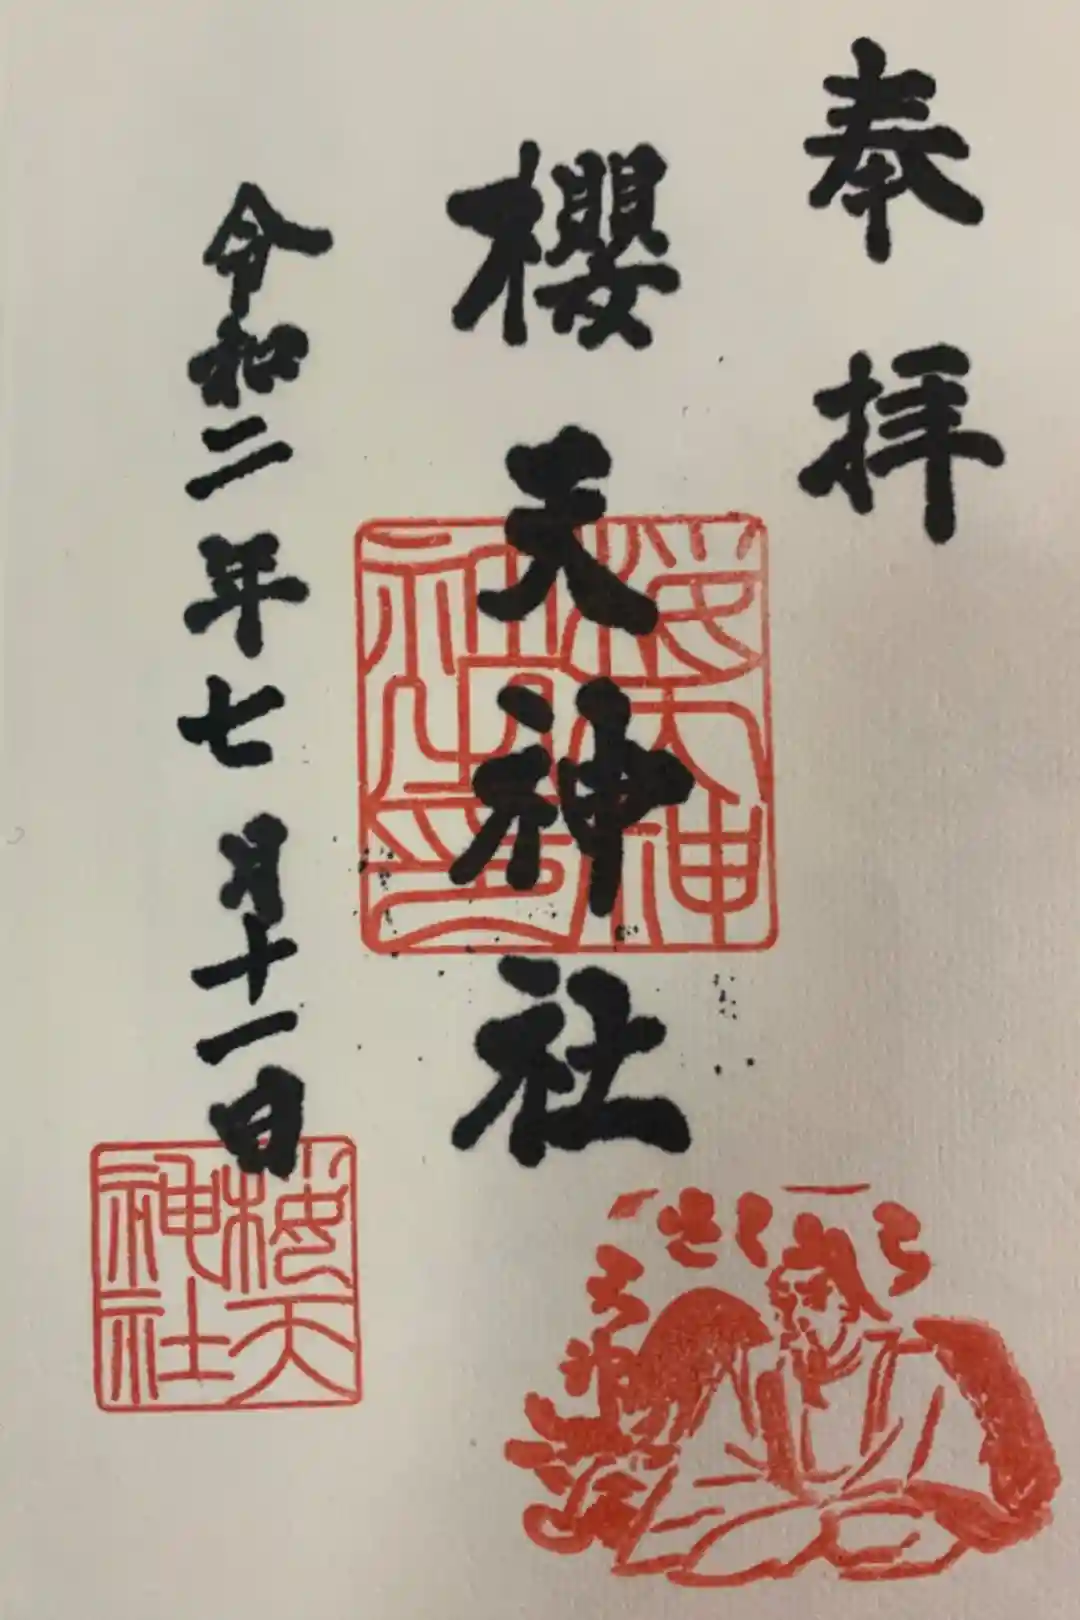 奉拝
櫻天神社
桜天神社之印
令和二年七月十一日
桜天神社